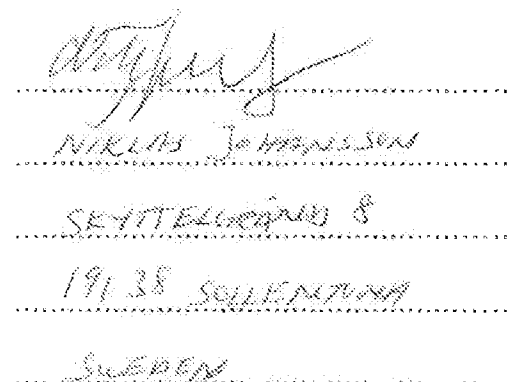 NIKLAS JOHANSSON
SKYTTELGRÄND 8
191 38 SOLLENTUNA
SWEDEN